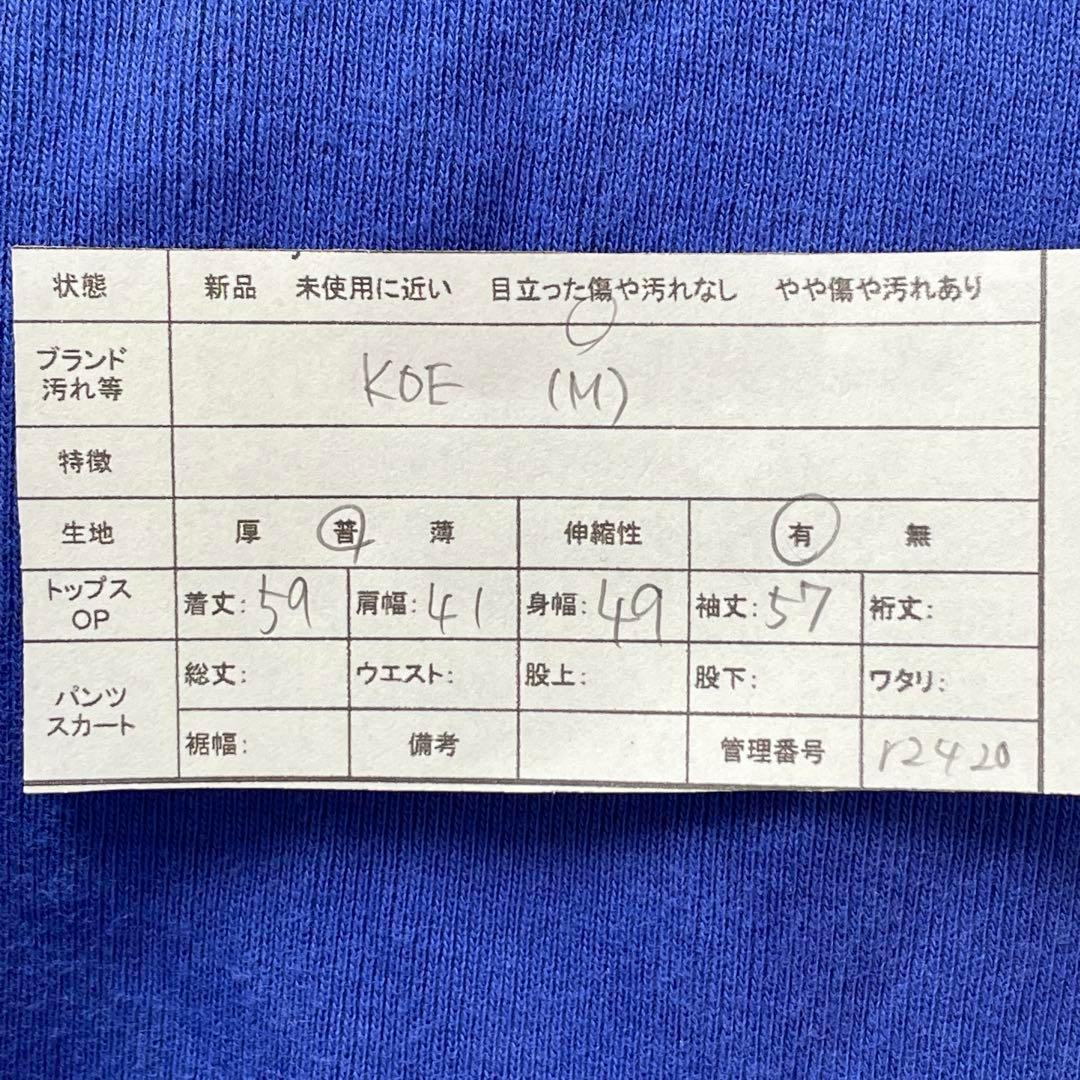 状態 新品 未使用に近い 目立った傷や汚れなし やや傷や汚れあり
ブランド
汚れ等
KOE (M)
特徴
生地 厚 普 薄 伸縮性 有 無
トップス
OP
着丈:59 肩幅:41 身幅:49 袖丈:57 裄丈:
パンツ
スカート
総丈: ウエスト: 股上: 股下: ワタリ:
裾幅: 備考 管理番号 r2420